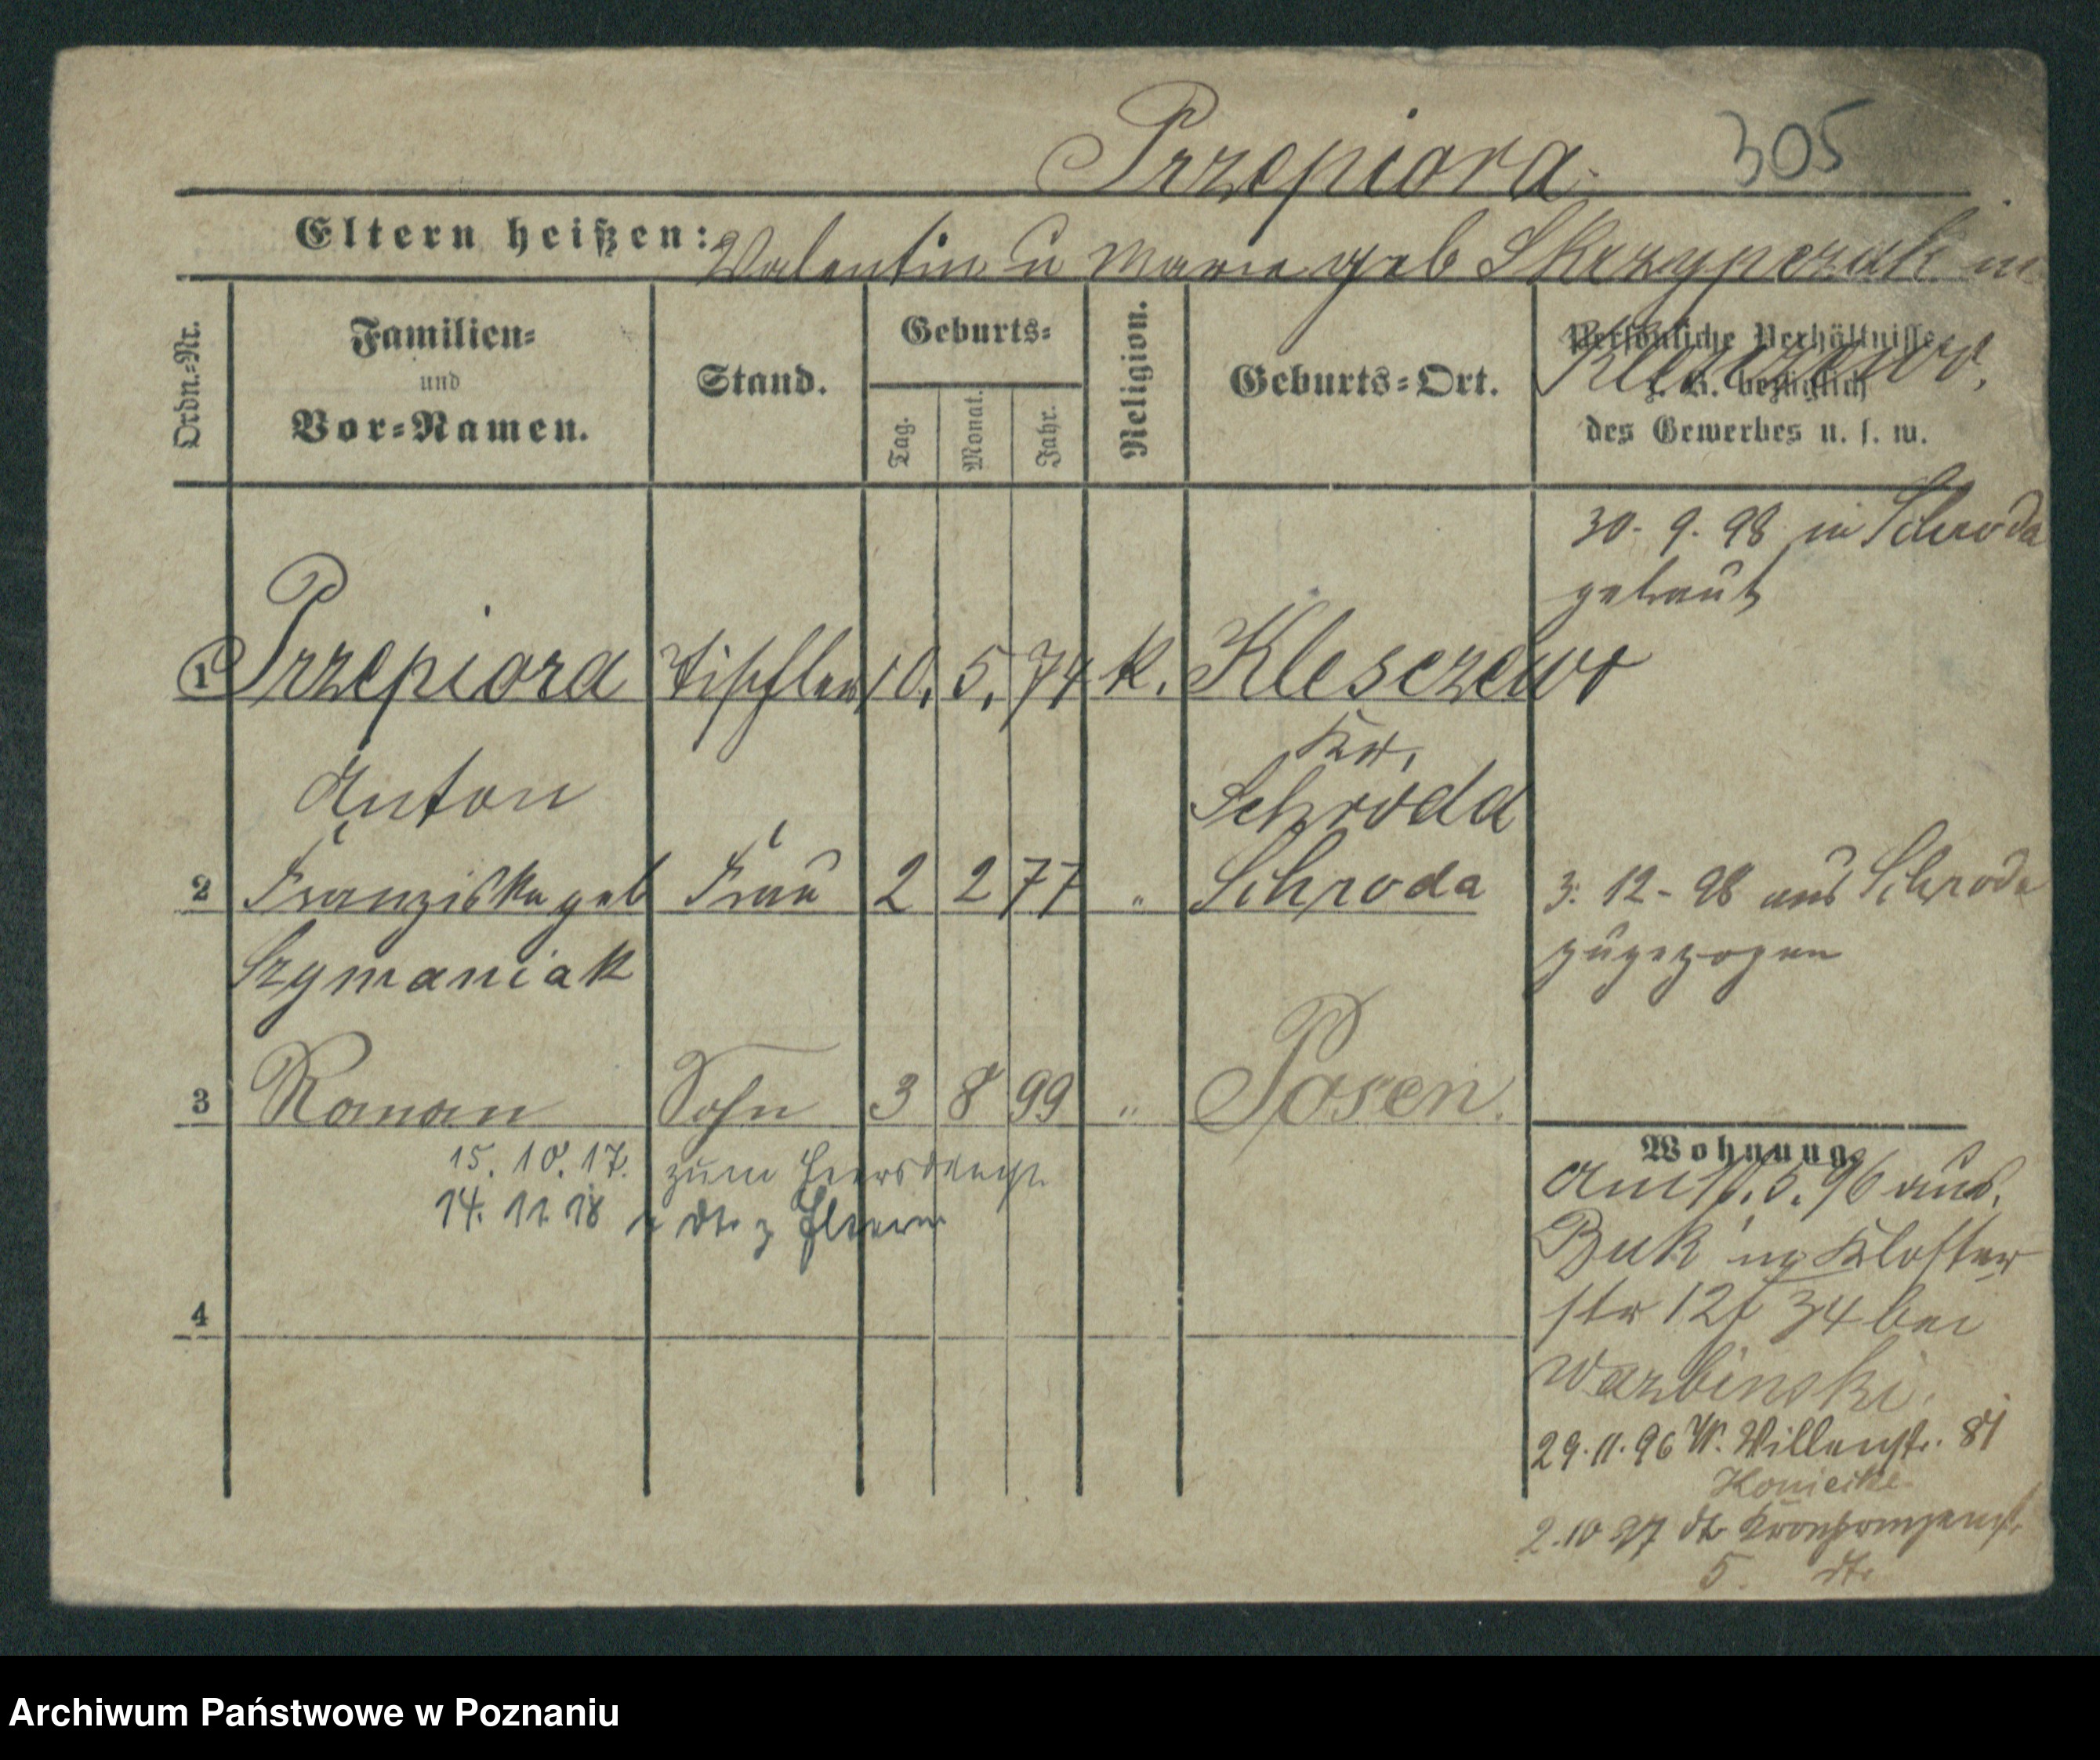 Przepiora. 305
Eltern heißen: Valentin u Marie geb Skrzypczak in
Kleszczewo.
Ordn.-Nr.
Familien-
und
Vor-Namen.
Stand.
Geburts-
Tag.
Monat.
Jahr.
Religion.
Geburts-Ort.
Persönliche Verhältnisse
z. B. bezüglich
des Gewerbes u. s. w.
30. 9. 98 in Schroda
getraut
1 Przepiora Tischler 10. 5. 74 k. Klesczewo
Kr.
Anton Schroda
2 Franziska geb Frau 2 2 77 " Schroda 3. 12 - 98 aus Schroda
Szymaniak zugezogen
3 Roman Sohn 3 8 99 " Posen.
15. 10. 17. zum Heeresdienst
14. 11. 18 dto z Eltern
4
Wohnung.
Am 5. 96 aus
Buk Kloster
str 12 34 bei
Warbinski.
29. 11. 96 W. Villenstr. 8
2. 10 97 dto Kronprinzenstr.
5. dto
Archiwum Państwowe w Poznaniu